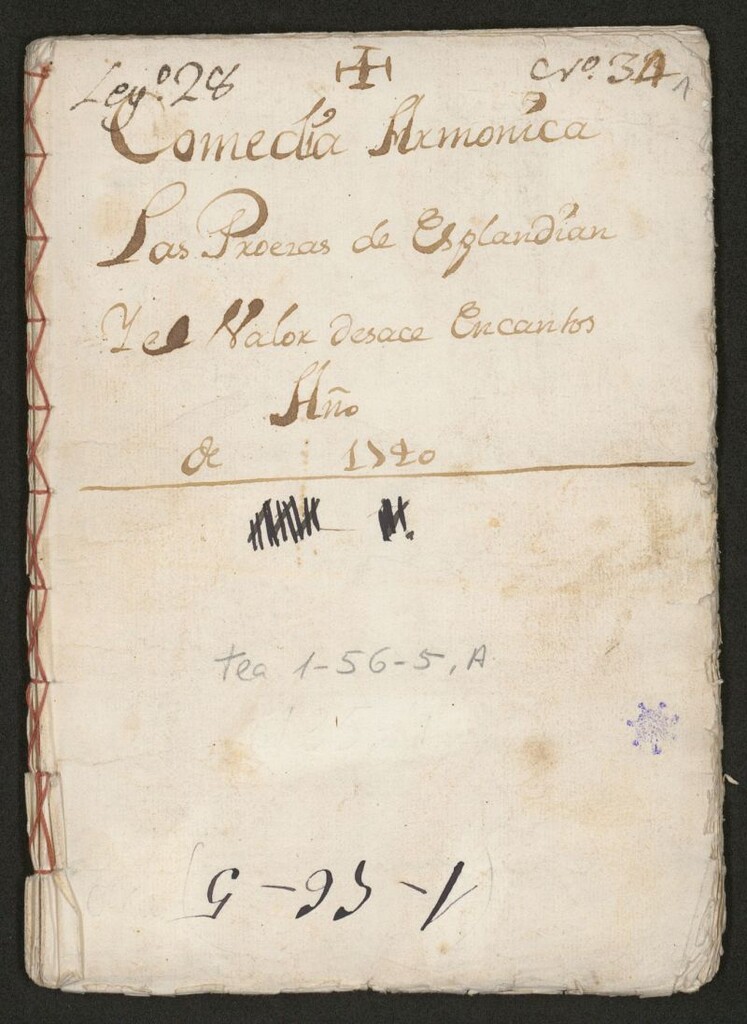 Leg.º 28 Nº. 34 1
Comedia Armonica
Las Proezas de Esplandian
Y el Valor desace Encantos
Año
de 1740
tea 1-56-5, A
1-56-5